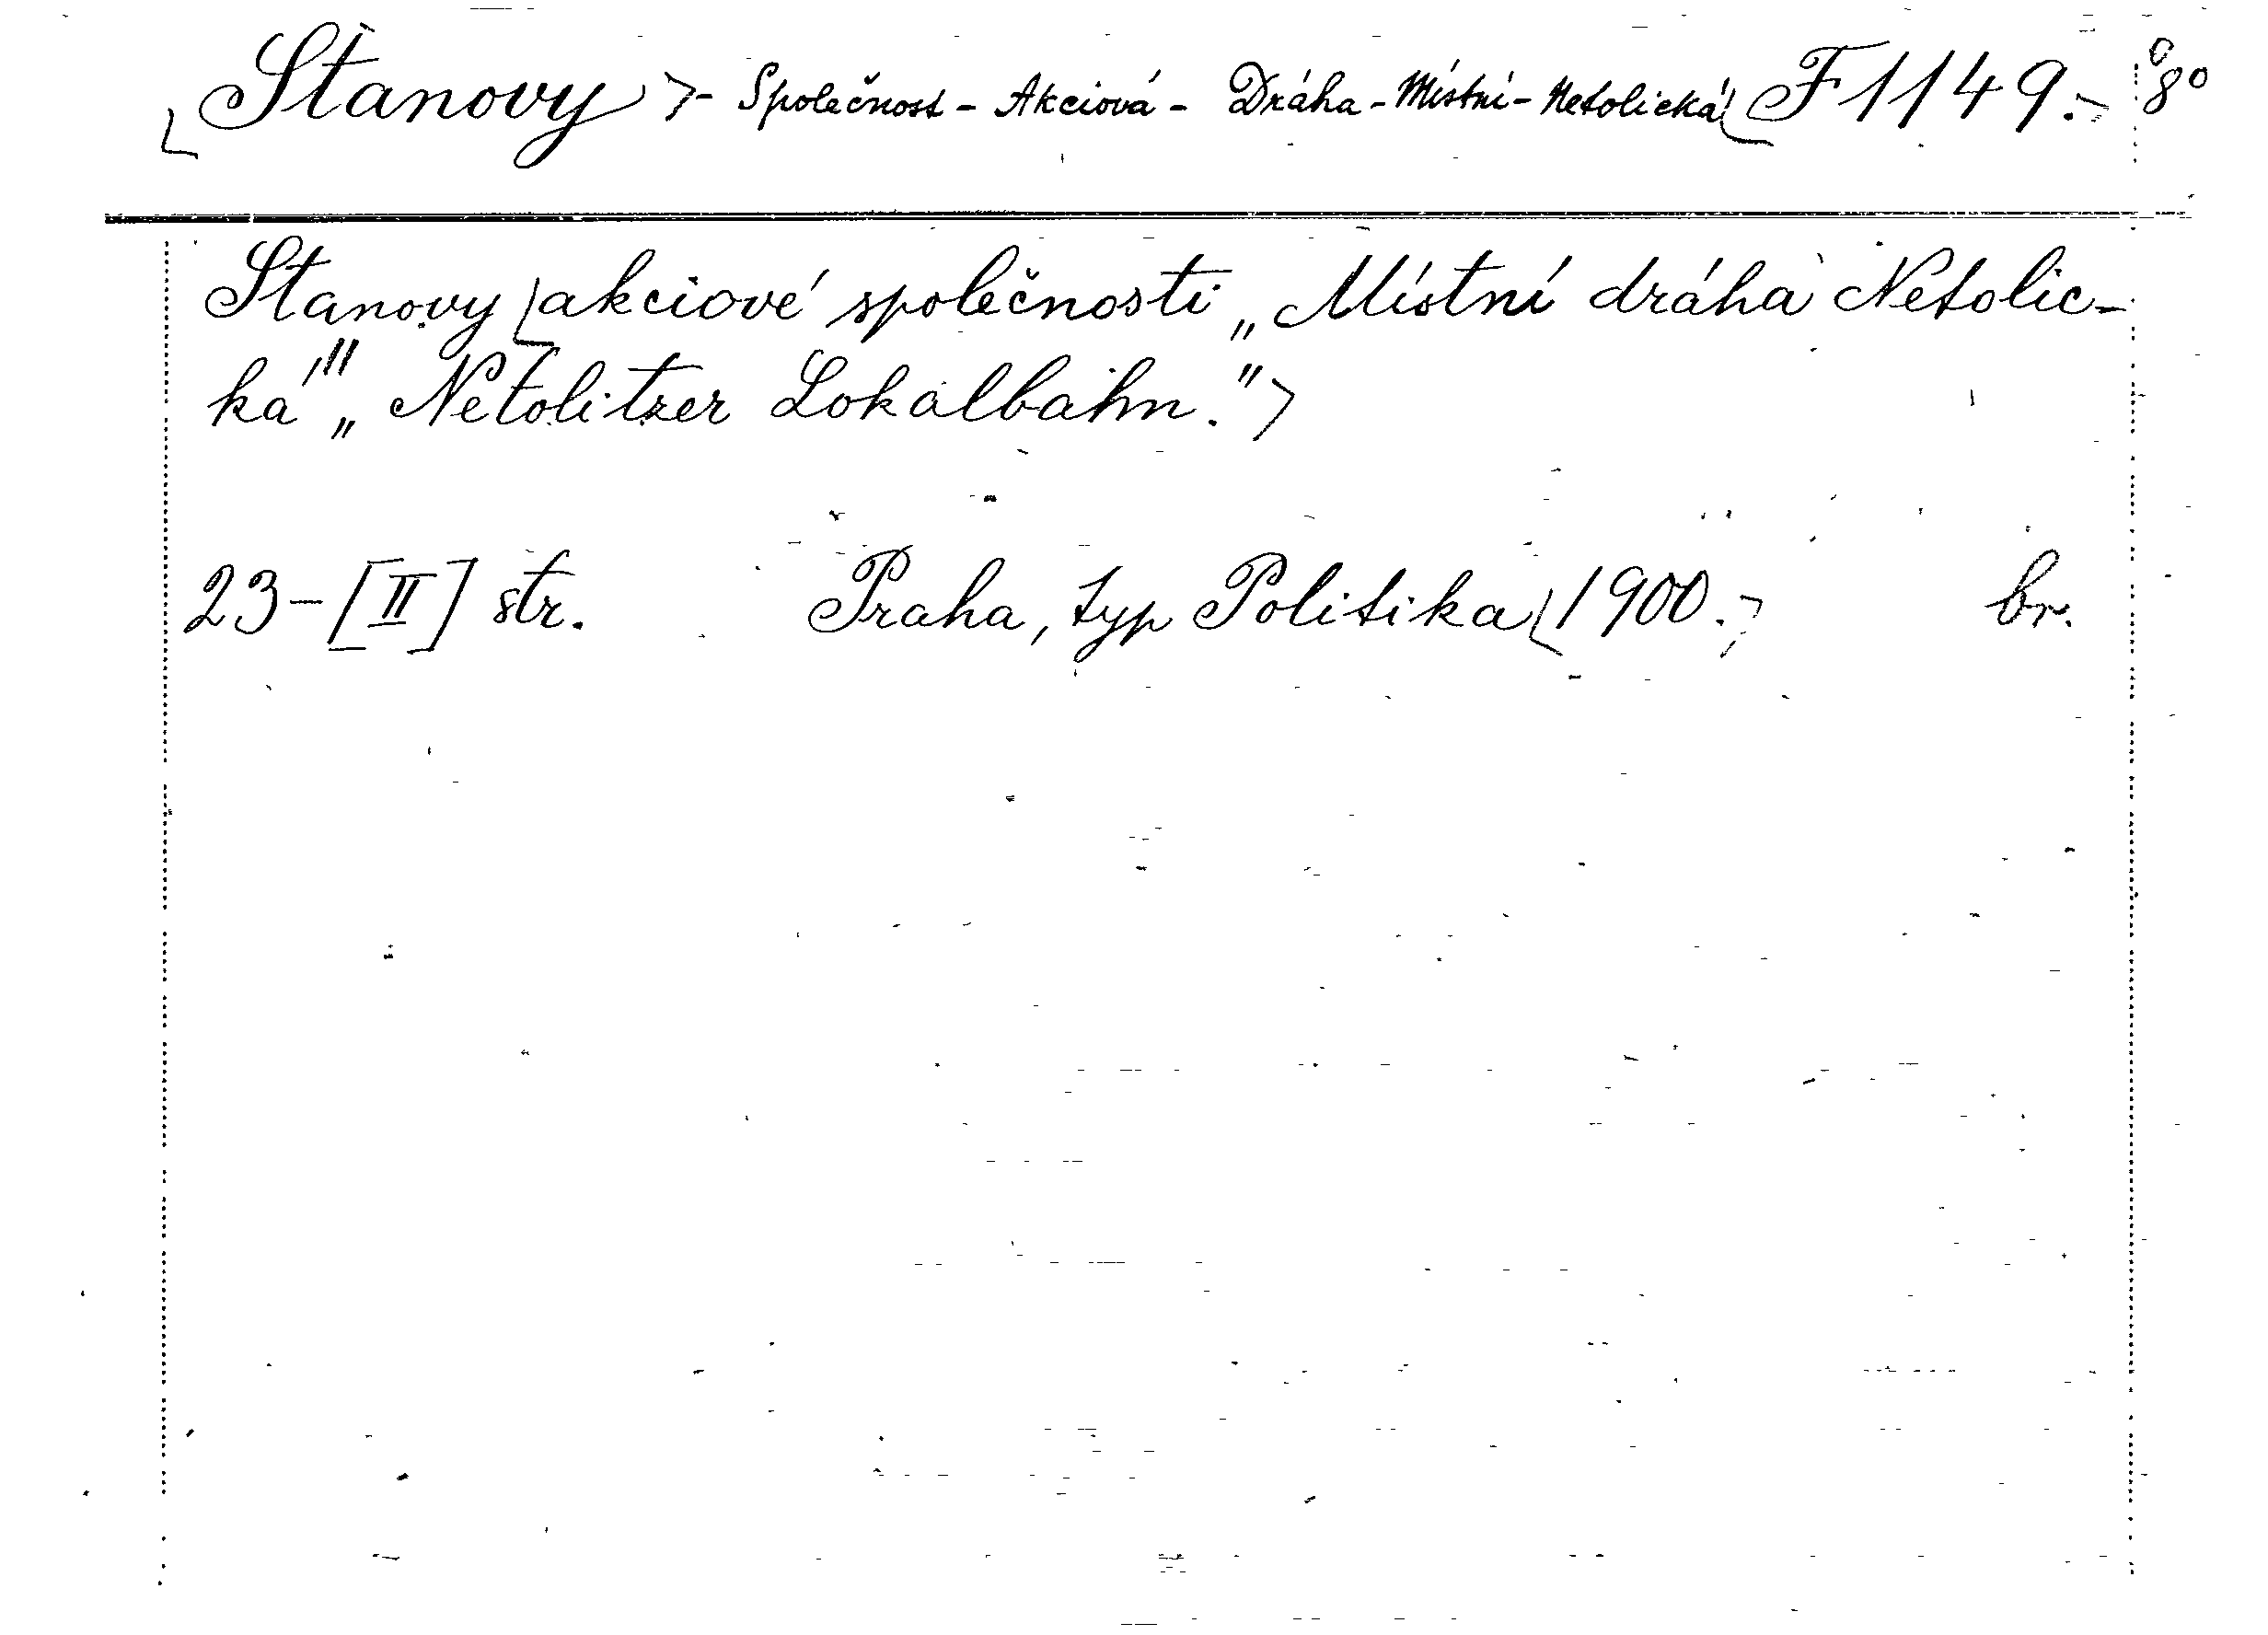 Stanovy - Společnost - Akciová - Dráha - Místní - Netolická F 1149. 8°
Stanovy akciové společnosti „Místní dráha Netolic-
ká" „Netolitzer Lokalbahn."
23-[II] str. Praha, typ Politika 1900. br.